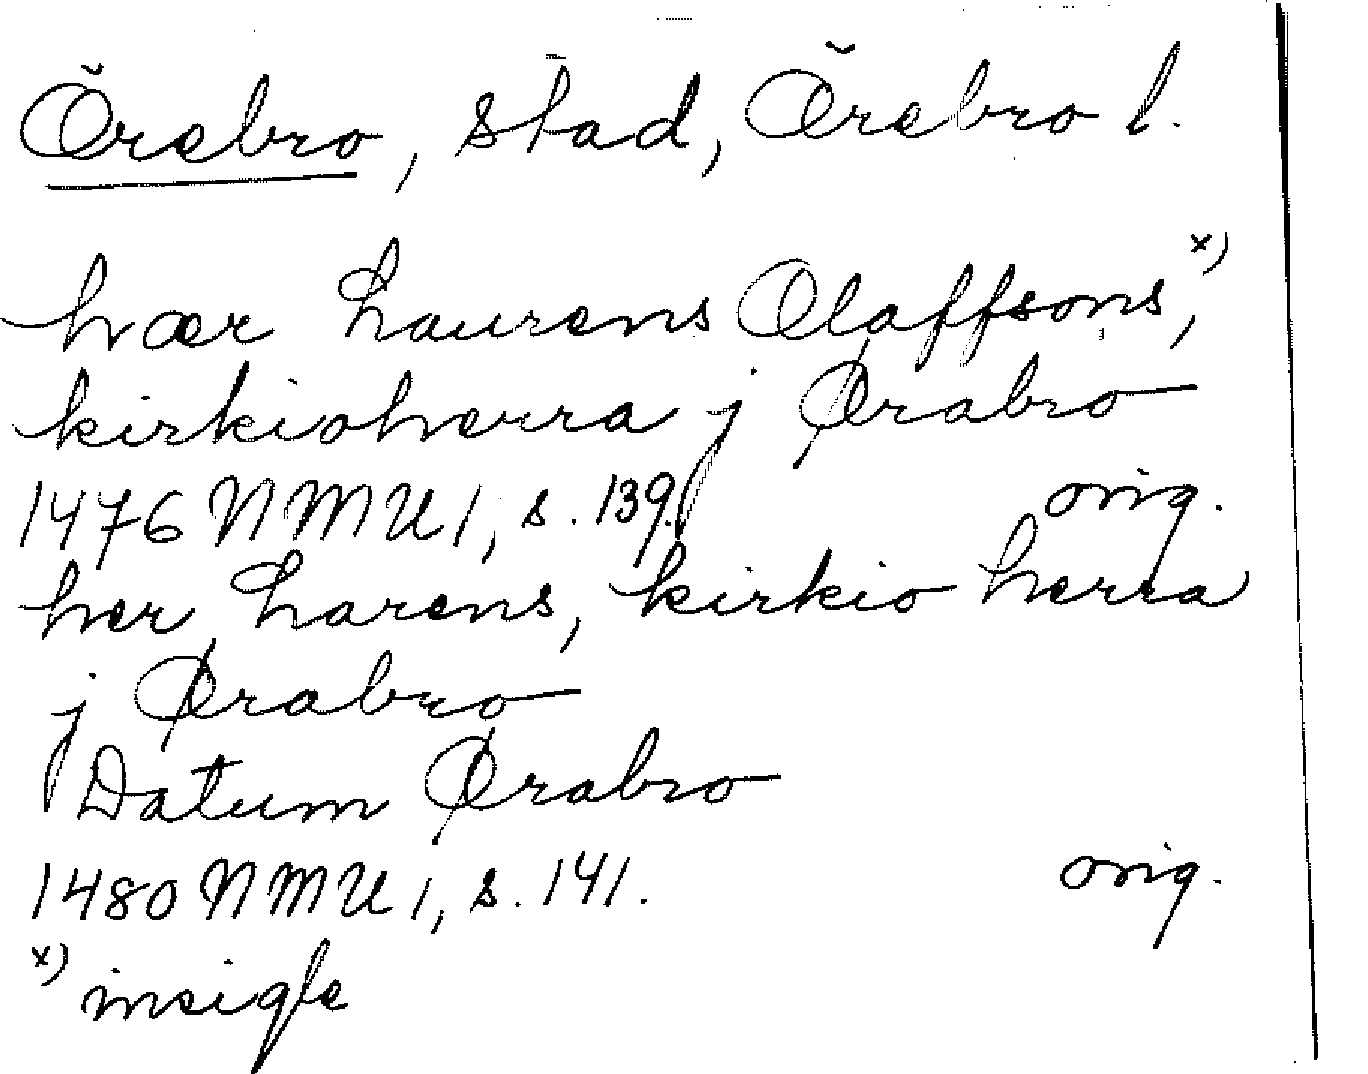 Örebro, stad, Örebro l.
hær Laurens Olaffsons,x)
kirkioherra j Ørabro
1476 NMU 1, s. 139. orig.
her Larens, kirkio herra
j Ørabro
Datum Ørabro
1480 NMU 1, s. 141. orig.
x) insigle